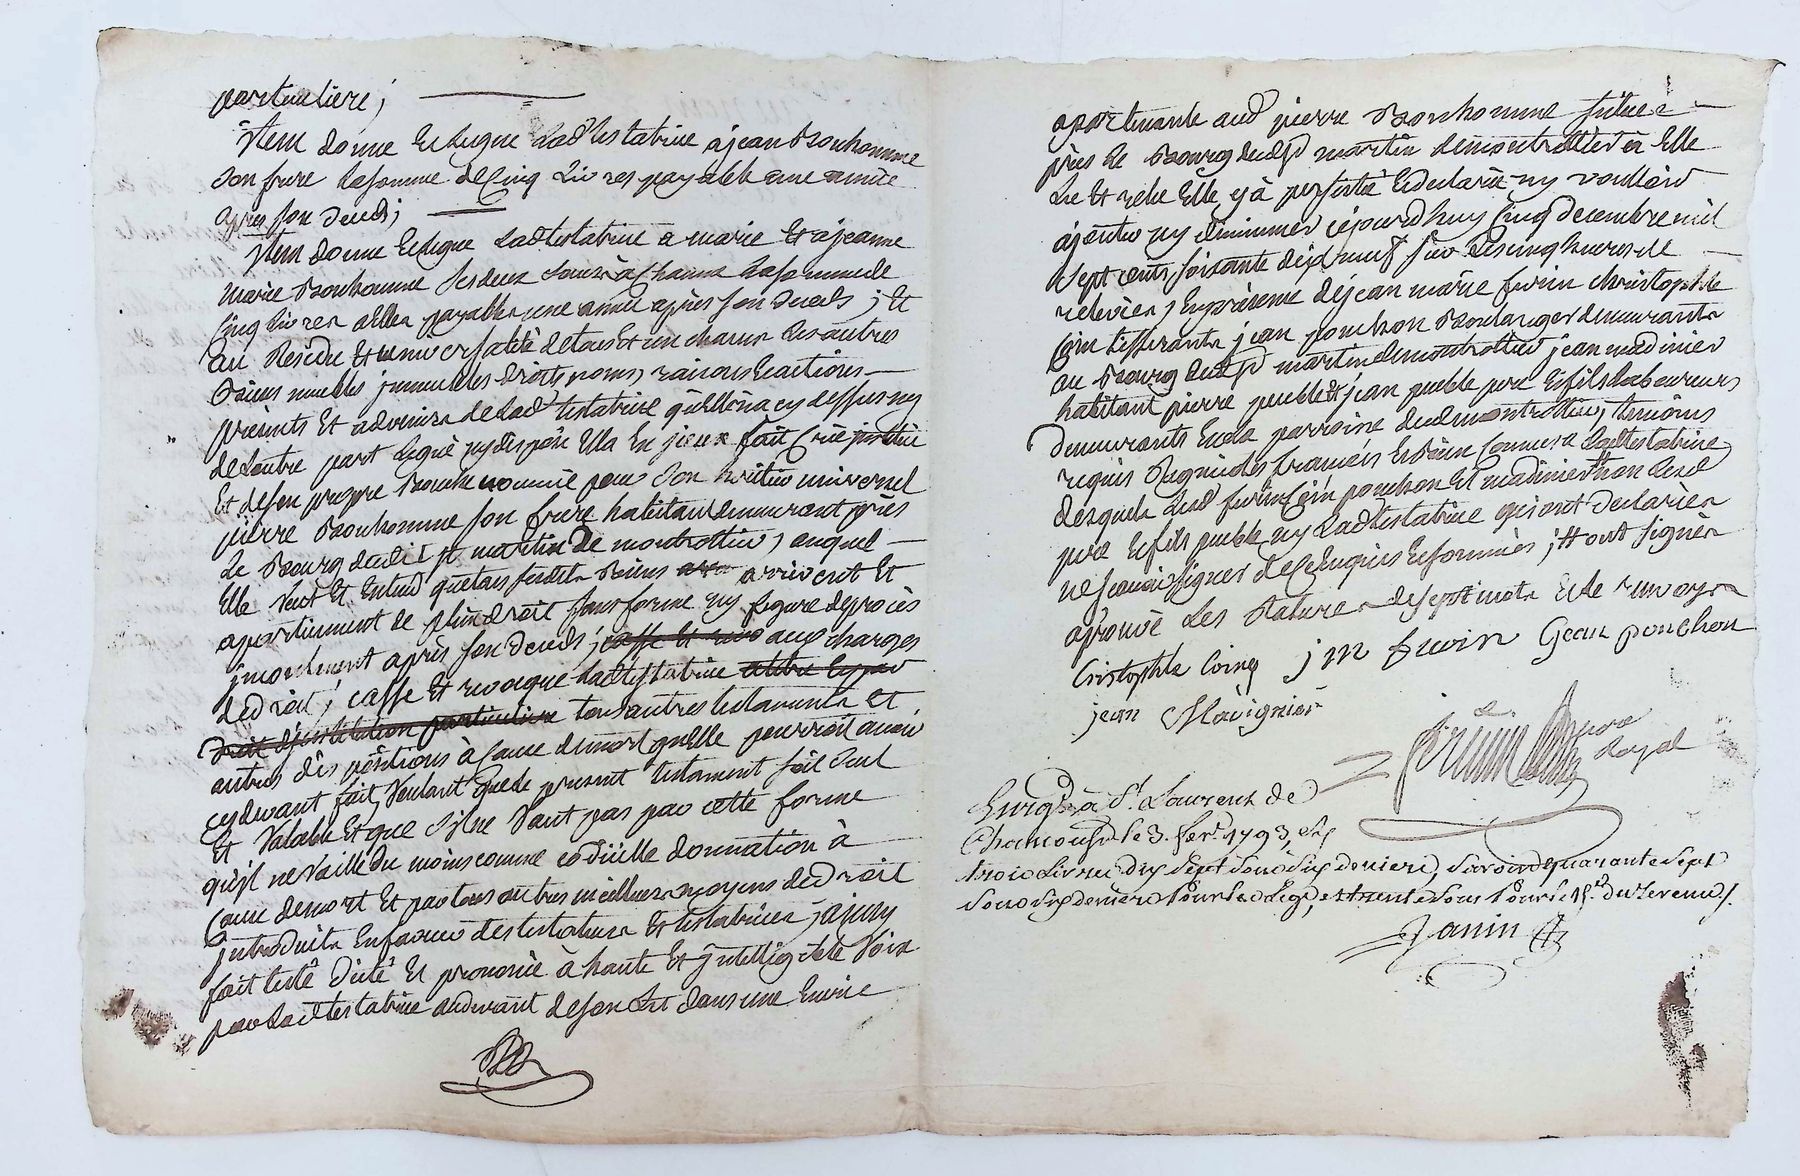 particuliere ;
Item donne et legue Ladte testatrice a jean Bonhomme
son frere la somme de Cinq Livres payable une année
apres son deceds ;
Item donne et legue Ladte testatrice a marie Et a jeanne
marie Bonhomme ses deux sœurs à chacune la somme de
Cinq Livres a elles payables une année après son deceds ; Et
au Residu Et universalité de tous Et un chacun les autres
Biens meubles jmmeubles droits noms, raisons Et actions
présents Et advenirs de Ladte testatrice qu'elle n'a cy dessus ny
de l'autre part legué ny disposé Elle En jceux fait Crée jnstitue
Et de son propre Bouche nommé pour son heritier universel
pierre Bonhomme son frere habitant demeurant près
Le Bourg dudit st martin de montrottier, auquel
Elle Veut Et Entend que tous sesdits Biens arrivent Et
appartiennent de plein droit sans forme ny figure de procès
jncontinent après son deceds ; casse Et aux charges
de droit, casse Et revoque Ladte testatrice
droit d'jnstitution particuliere tous autres testaments Et
autres dispositions à Cause de mort qu'elle pourroit avoir
cy devant fait, Voulant que le present testament soit seul
Et Valable Et que s'il ne Vaut pas par cette forme
qu'jl ne Vaille du moins comme codicille donnation à
Cause de mort Et par tous autres meilleurs moyens de droit
jntroduits En faveur des testateurs Et testatrices, ainsy
fait testé dicté Et prononcé à haute Et jntelligible Voix
par Ladte testatrice au devant de son Lit dans une Ecurie
apartenante aud pierre Bonhomme située
près le Bourg dudst martin de montrottier à Elle
Lu Et relu Elle y à persisté Et declaré ny voulloir
ajouter ny diminuer cejourd'huy Cinq decembre mil
sept cents soixante dix neuf sur Les cinq heures de
relevée, En presence de jean marie Coin tisserants jean ponchon Boulanger demeurants
au Bourg dudst martin de montrottier jean madinier
habitant pierre puble Et jean puble pere Et fils Laboureurs
demeurants En La parroisse dudt montrottier, témoins
requis Regnicoles francois Et Bien Connus a Ladte testatrice
desquels Coin ponchon Et madinier
pere Et fils puble ny Ladte testatrice qui ont declarés
ne scavoir signer de ce Enquis Et sommés ; ont signés
aprouvé Les Ratures de sept mots Et le renvoys
Cristophle Coing j m Gean ponchon
jean Madignier
nore
Royal
à St Laurent de
Chamousset le 3. fevr. 1793,
trois livres dix sept sous six deniers, savoir quarante sept
sous six deniers pour et trente sous pour le
Janin